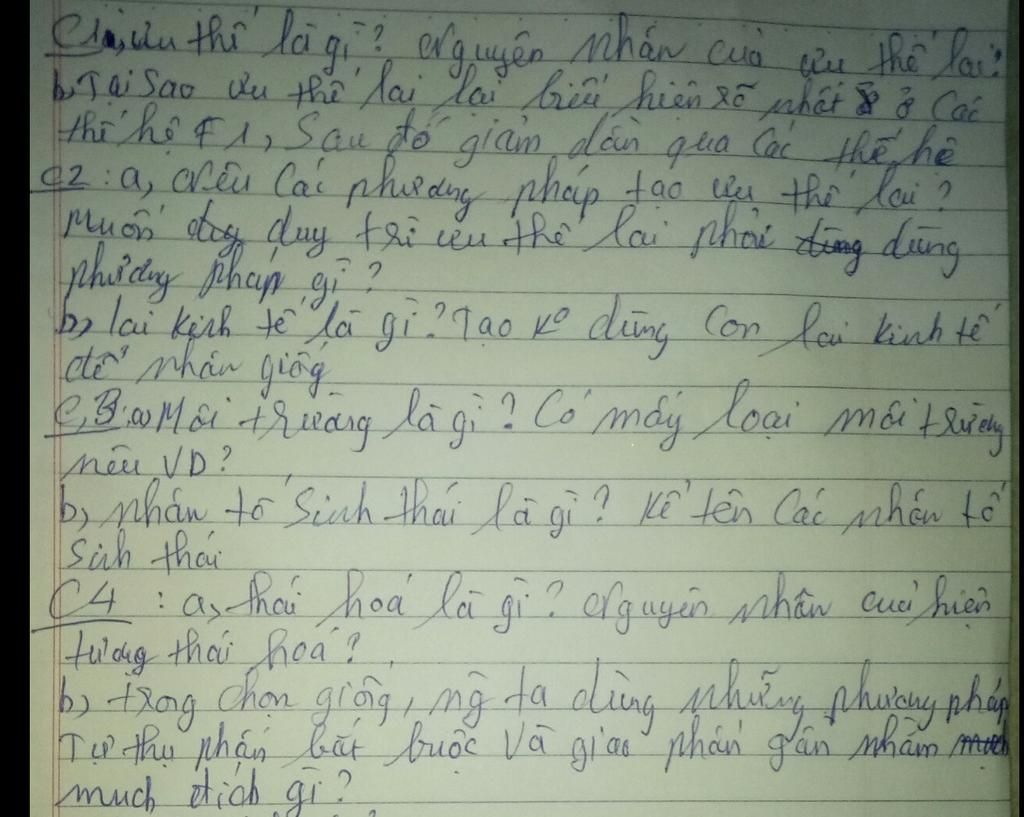 C1a, ưu thế là gì? Nguyên nhân của ưu thế lai?
b, Tại sao ưu thế lai lại biểu hiện rõ nhất ở các
thế hệ F1, sau đó giảm dần qua các thế hệ
C2: a, Nêu các phương pháp tạo ưu thế lai?
Muốn duy trì ưu thế lai phải dùng
phương pháp gì?
b, lai kinh tế là gì? Tạo k° dùng con lai kinh tế
để nhân giống
C,3: a, Môi trường là gì? Có mấy loại môi trường
nêu VD?
b, nhân tố sinh thái là gì? Kể tên các nhân tố
sinh thái
C4: a, thái hoá là gì? Nguyên nhân của hiện
tượng thái hoá?
b) trong chọn giống, ng ta dùng những phương pháp
Tự thụ phấn bắt buộc và giao phấn gần nhằm
much đích gì?